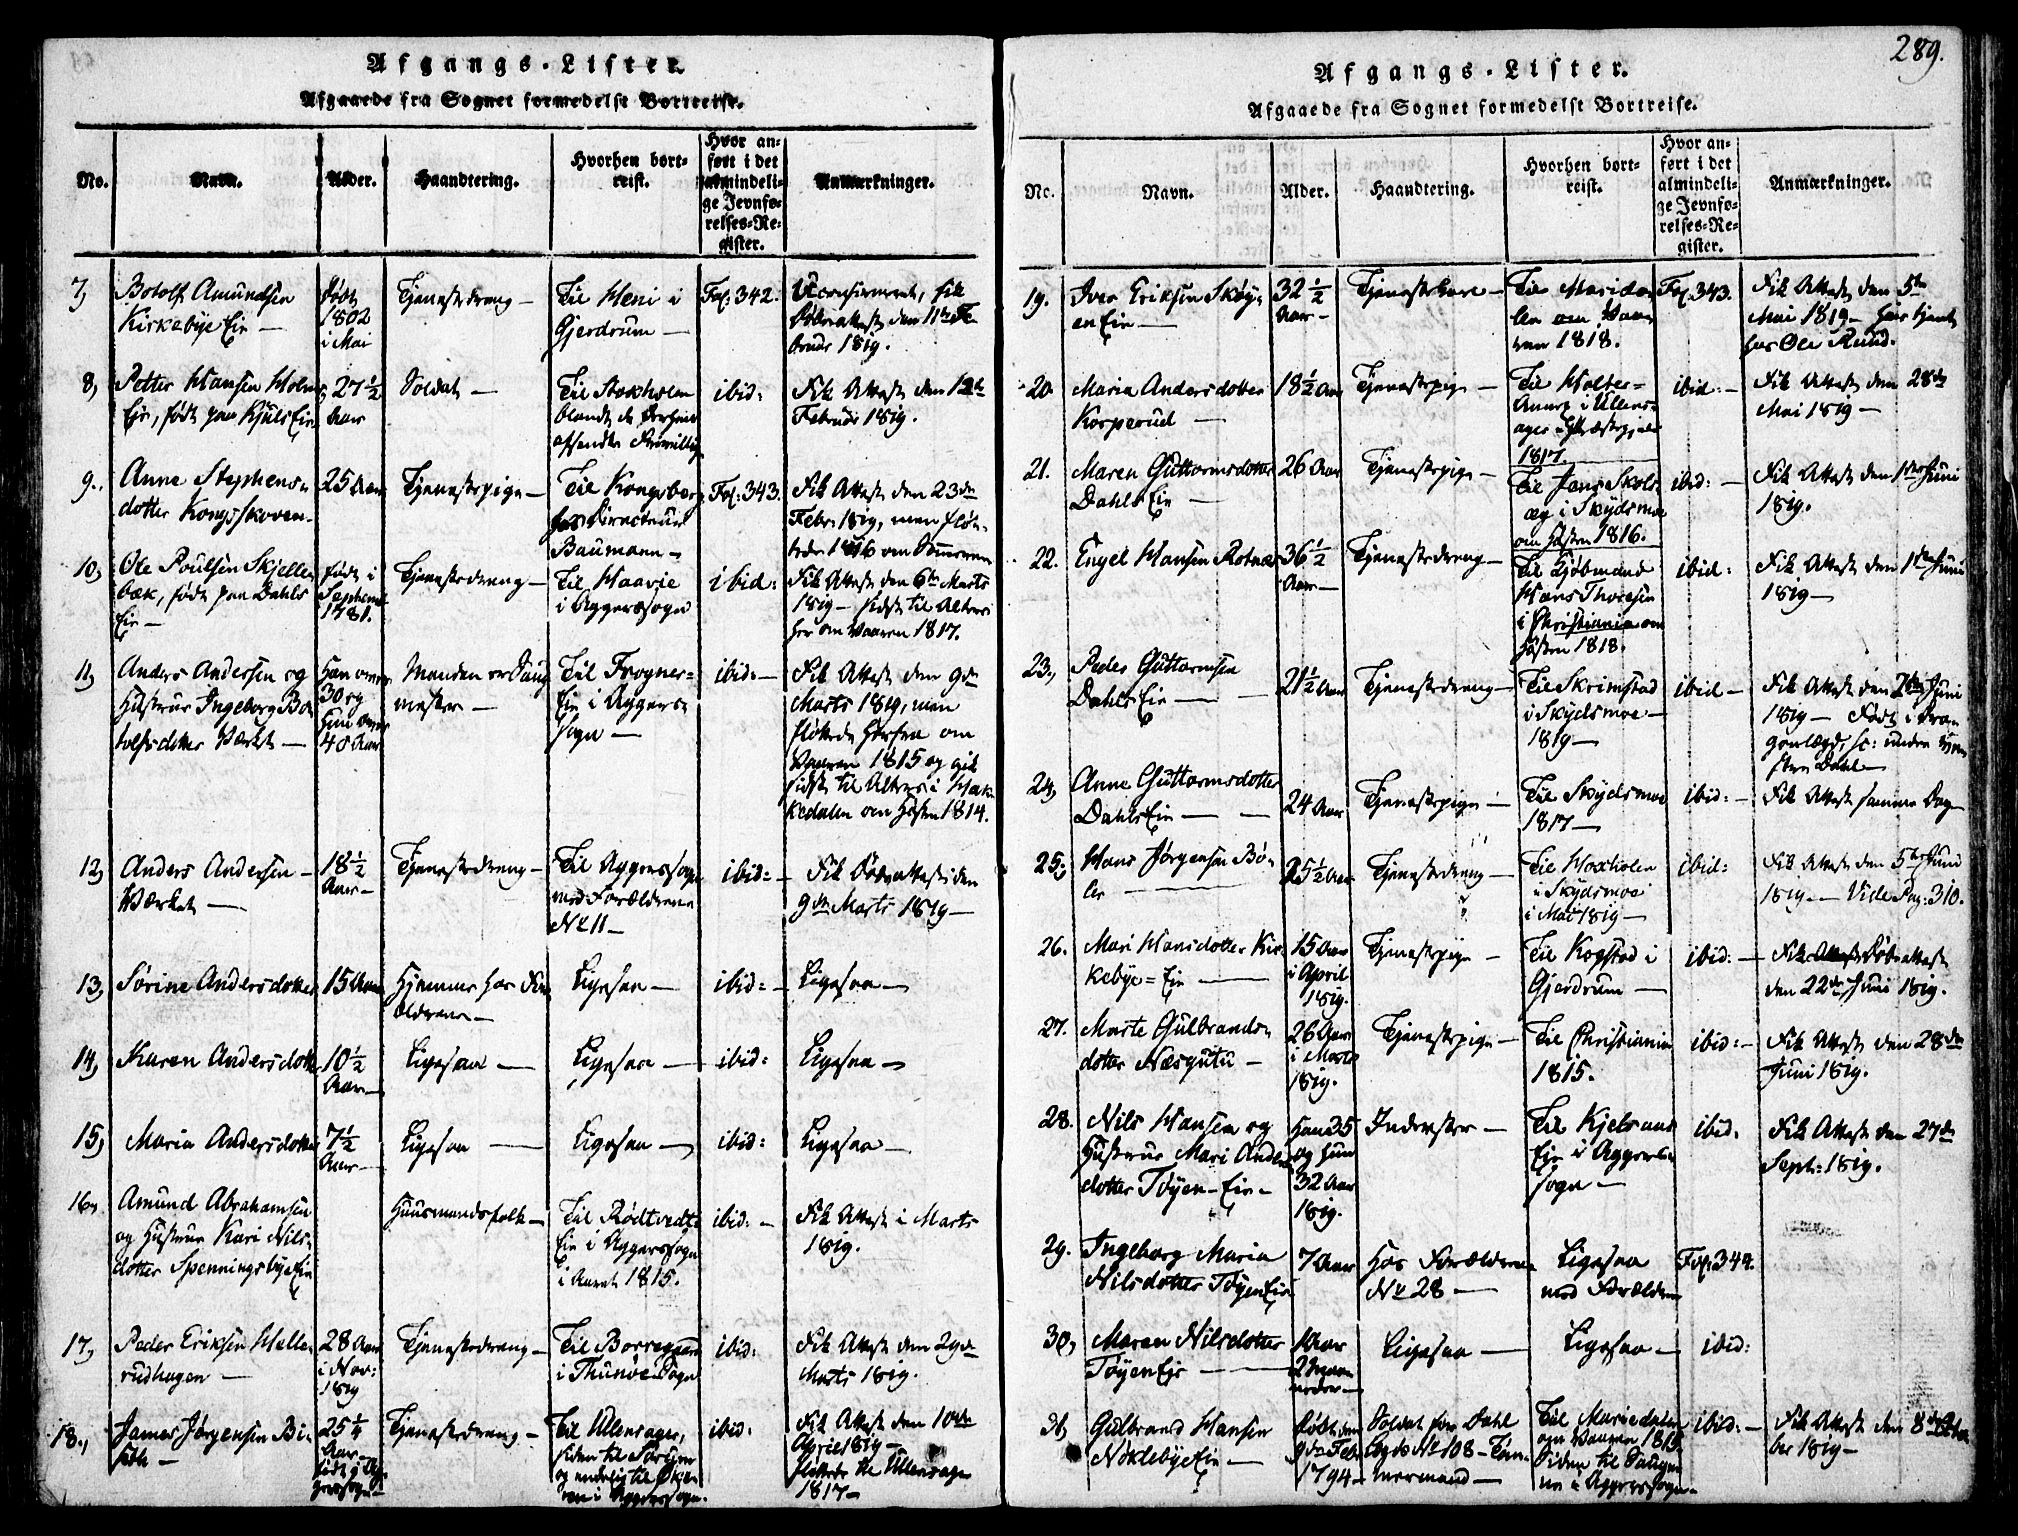 Afgangs-Lister.
Afgaaede fra Sognet formedelst Bortreise.
No.
Navn.
Alder.
Haandtering.
Hvorhen bort-
reist.
Hvor an-
ført i det
almindeli-
ge Jevnfø-
relses-Re-
gister.
Anmærkninger.
7,
Botolf Amundsen
Kirkebye Eie —
født
1802
i Mai
Tjenestedreng —
Til Heni i
Gjerdrum —
Fol: 342.
Uconfirmeret, fik
Døbeattest den 11te Fe-
bruar 1819.
8,
Petter Hansen Holm
Eie, født paa Kjuls Eie
27 1/2
Aar
Soldat —
Til Stokholm
blandt de
afsendte Frivillige
ibid:
Fik Attest den 12te
Februar 1819.
9.,
Anne Stephens-
dotter Kongsskoven
25 Aar
Tjenestepige —
Til Kongsberg
hos Directeur
Baumann —
Fol: 343.
Fik Attest den 23de
Febr: 1819, men flyt-
tede 1816 om Sommeren
10,
Ole Poulsen Skjelle-
bæk, født paa Dahls
Eie —
født i
Septembr
1781.
Tjenestedreng —
Til Haavie
i Aggers sogn
ibid:
Fik Attest den 6te Marts
1819 — sidst til Alters
her om Vaaren 1817.
11,
Anders Andersen og
Hustrue Ingeborg Bo-
tolfsdotter Værket —
Han over
30 og
Hun over
40 Aar
Manden er Saug
mester —
Til Frogner-
Eie i Aggers
sogn —
ibid: —
Fik Attest den 9de
Marts 1819, men
fløttede herfra om
Vaaren 1815 og gik
sidst til Alters i Hak-
kedalen om Høsten 1814.
12,
Anders Andersen —
Værket —
18 1/2
Aar —
Tjenestedreng —
Til Aggers sogn
med Forældrene
No 11 —
ibid: —
Fik Døbeattest den
9de Marts 1819 —
13,
Sørine Andersdotter
15 Aar
Hjemme hos For-
ældrene —
Ligesaa —
ibid: —
Ligesaa —
14,
Karen Andersdotter
10 1/2
Aar —
Ligesaa —
Ligesaa —
ibid:
Ligesaa —
15,
Maria Andersdotter
7 1/2
Aar —
Ligesaa —
Ligesaa —
ibid:
Ligesaa —
16,
Amund Abrahamsen
og Hustrue Kari Nils-
dotter Spenningsbye Eie
Huusmandsfolk —
Til Rødtvedt-
Eie i Aggers sogn
i Aaret 1815.
ibid: —
Fik Attest i Marts
1819.
17,
Peder Eriksen Helle-
rudhagen —
28 Aar
i Nov:
1819
Tjenestedreng —
Til Borregaard
i Thunøe Sogn
ibid:
Fik Attest den 29de
Marts 1819.
18.,
James Jørgensen Bi-
—
25 1/4
Aar
Tjenestedreng —
Til Ullensager,
siden til Sørum
og endelig til
i Aggers sogn.
ibid:
Fik Attest den 10de
April 1819 —
flyttede til Ullensager
1817 —
289.
Afgangs-Lister.
Afgaaede fra Sognet formedelst Bortreise.
No.
Navn.
Alder.
Haandtering.
Hvorhen bort-
reist.
Hvor an-
ført i det
almindeli-
ge Jevnfø-
relses-Re-
gister.
Anmærkninger.
19.
Iver Eriksen Skøy-
en Eie —
32 1/2
Aar —
Tjenestekarl —
Til Marida-
len om Vaa-
ren 1818.
Fol: 343.
Fik Attest den 5te
Mai 1819 — har tjent
hos Ole Ruud.
20.
Maria Andersdotter
Korperud —
18 1/2 Aar
Tjenestepige —
Til Holter-
i Ullens-
ager Præstegjeld
1817.
ibid: —
Fik Attest den 28de
Mai 1819 —
21.
Maren Guttormsdotter
Dahls Eie —
26 Aar
Tjenestepige —
Til Jans
i Skydsmoe
om Høsten 1816.
ibid: —
Fik Attest den 1ste Juni
1819.
22.
Engel Hansen Rotnæs
36 1/2
Aar —
Tjenestedreng —
Til Kjøbmand
Hans Thoresen
i Christiania om
Høsten 1818.
ibid:
Fik Attest den 1ste Juni
1819 —
23.,
Peder Guttormsen
Dahls Eie —
21 1/2 Aar
Tjenestedreng —
Til Skrimstad
i Skydsmoe —
1819 —
ibid —
Fik Attest den 2den Juni
1819 — Født i Dra-
gonlægd, sc: under
Dahl —
24,
Anne Guttormsdotter
Dahls Eie —
24 Aar
Tjenestepige —
Til Skydsmoe
1817 —
ibid: —
Fik Attest samme Dag
25.,
Hans Jørgensen Bø-
ler —
25 1/2 Aar
Tjenestedreng —
Til Hoxholen
i Skydsmoe
i Mai 1819 —
ibid:
Fik Attest den 5te Juni
1819. — Vide Pag: 310.
26.
Mari Hansdotter Kir-
kebye-Eie —
15 Aar
i April
1819.
Tjenestepige —
Til Kogstad i
Gjerdrum —
ibid: —
Fik Døbeattest
den 22de Juni 1819.
27.
Marte Gulbrands-
dotter Næsgutu —
26 Aar
i Marts
1819.
Tjenestepige —
Til Christiania
1815.
ibid: —
Fik Attest den 28de
Juni 1819.
28.
Nils Hansen og
Hustrue Mari Anders-
dotter Tøyen-Eie —
Han 35
og hun
32 Aar
1819.
Inderster —
Til Kjelsaas
Eie i Aggers
sogn —
ibid.
Fik Attest den 27de
Sept: 1819.
29.
Ingeborg Maria
Nilsdotter Tøyen Eie
7 Aar
Hos Forældrene
No 28 —
Ligesaa
med Forældrene
Fol: 344.
30,
Maren Nilsdotter
Tøyen Eie —
1 Aar
2 Maa-
neder —
Ligesaa —
Ligesaa —
ibid:
31,
Gulbrand Hansen
Nøklebye Eie —
født den
9de Febr
1794 —
Soldat for Dahl
Lægds No 108 — Tøm-
mermand —
Til Mariedalen
om Vaaren 1815.
Siden til
i Aggers sogn —
ibid: —
Fik Attest den 8de Octo-
ber 1819 —